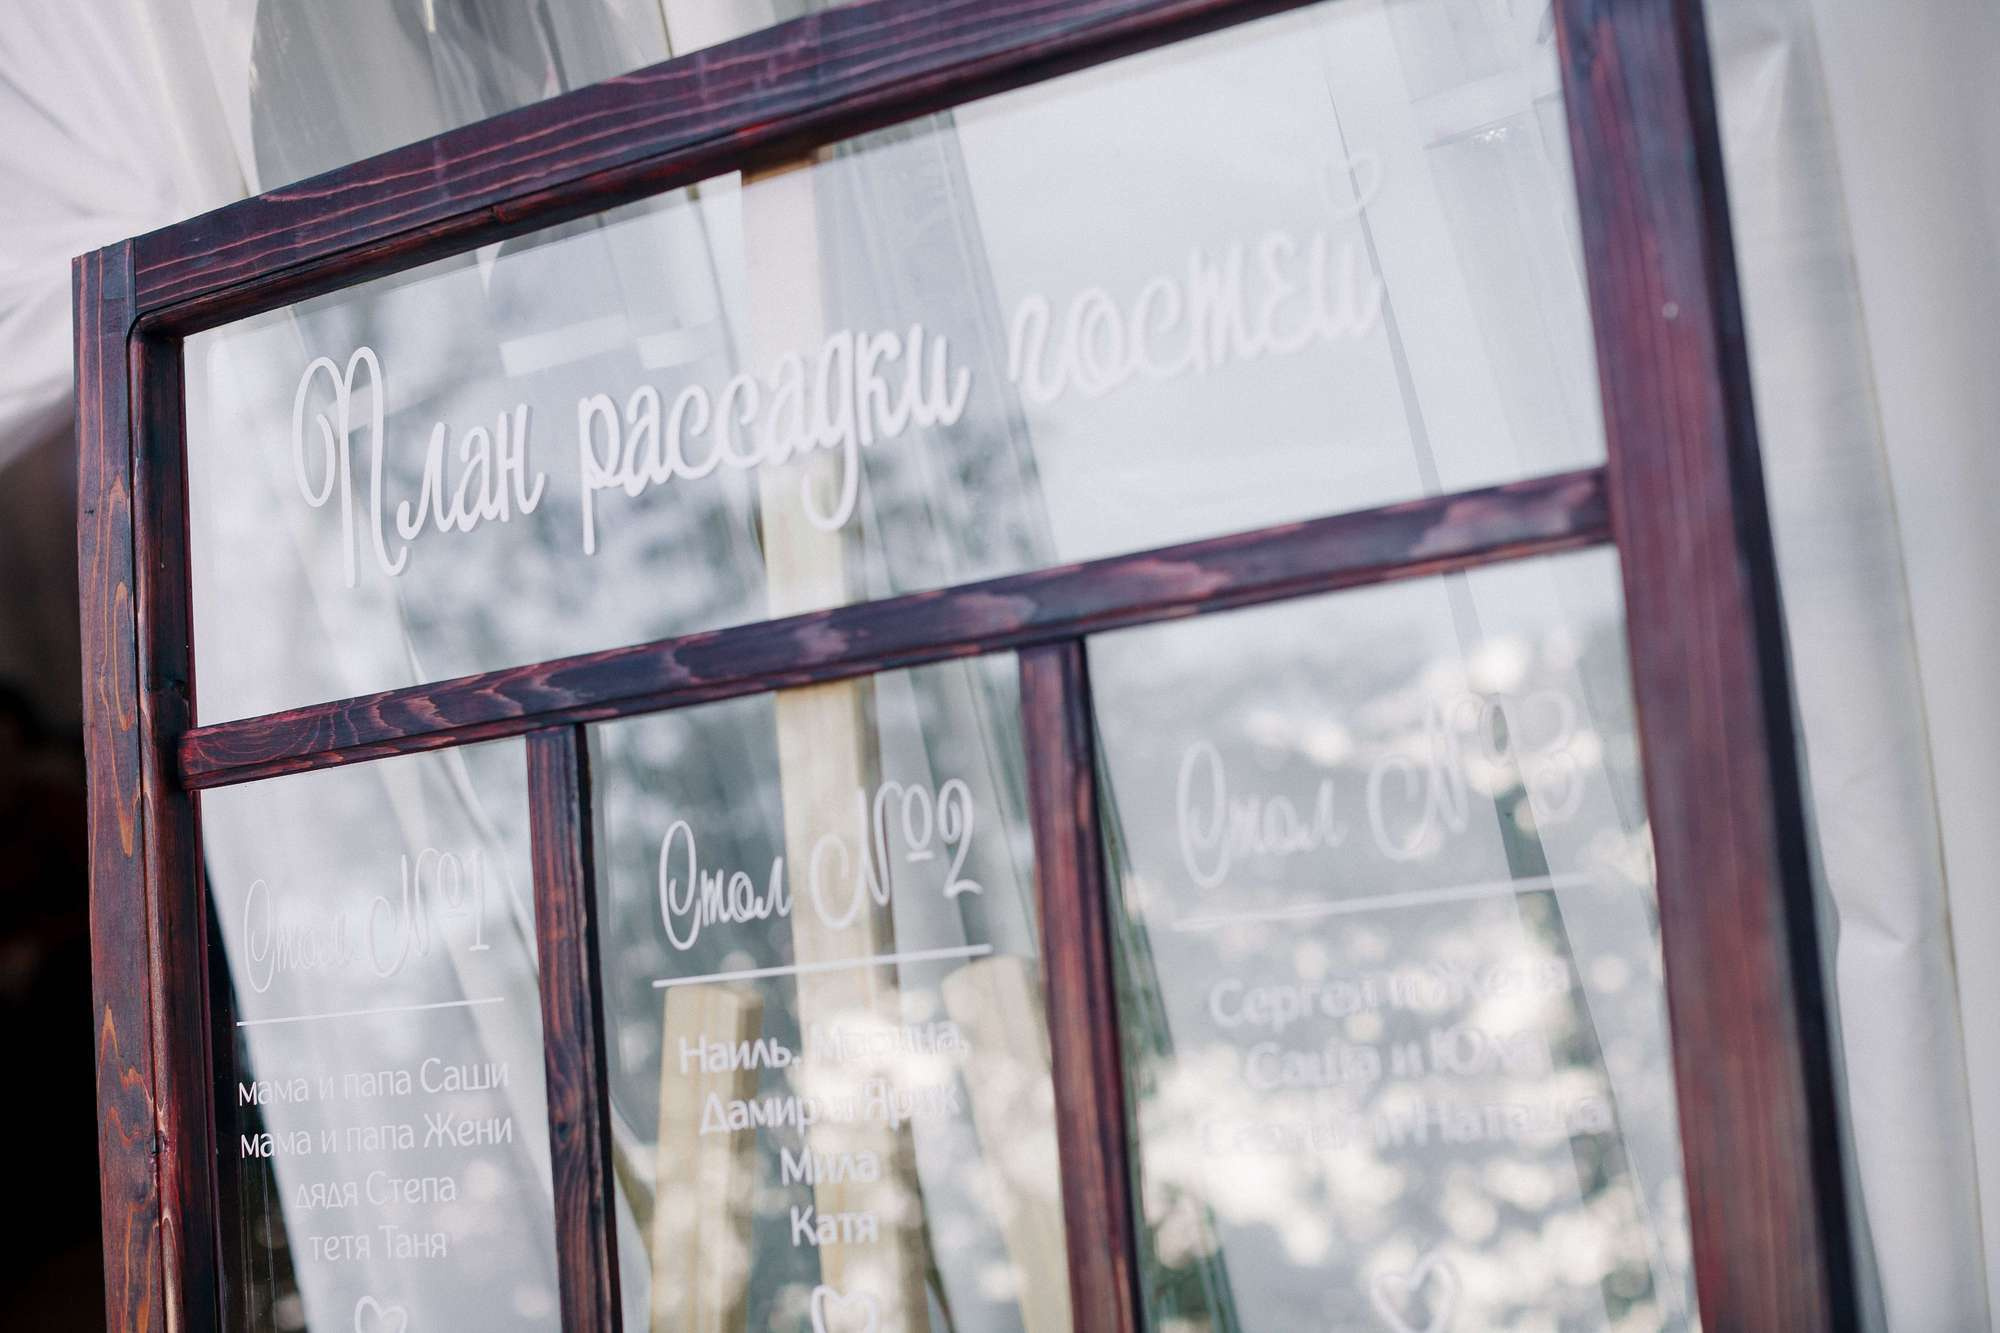 План рассадки гостей
Стол №1
мама и папа Саши
мама и папа Жени
дядя Степа
тетя Таня
Стол №2
Наиль, Марина,
Дамир и Ярик
Мила
Катя
Стол №3
Сергей и Женя
Саша и Юха
Сергей и Наташа